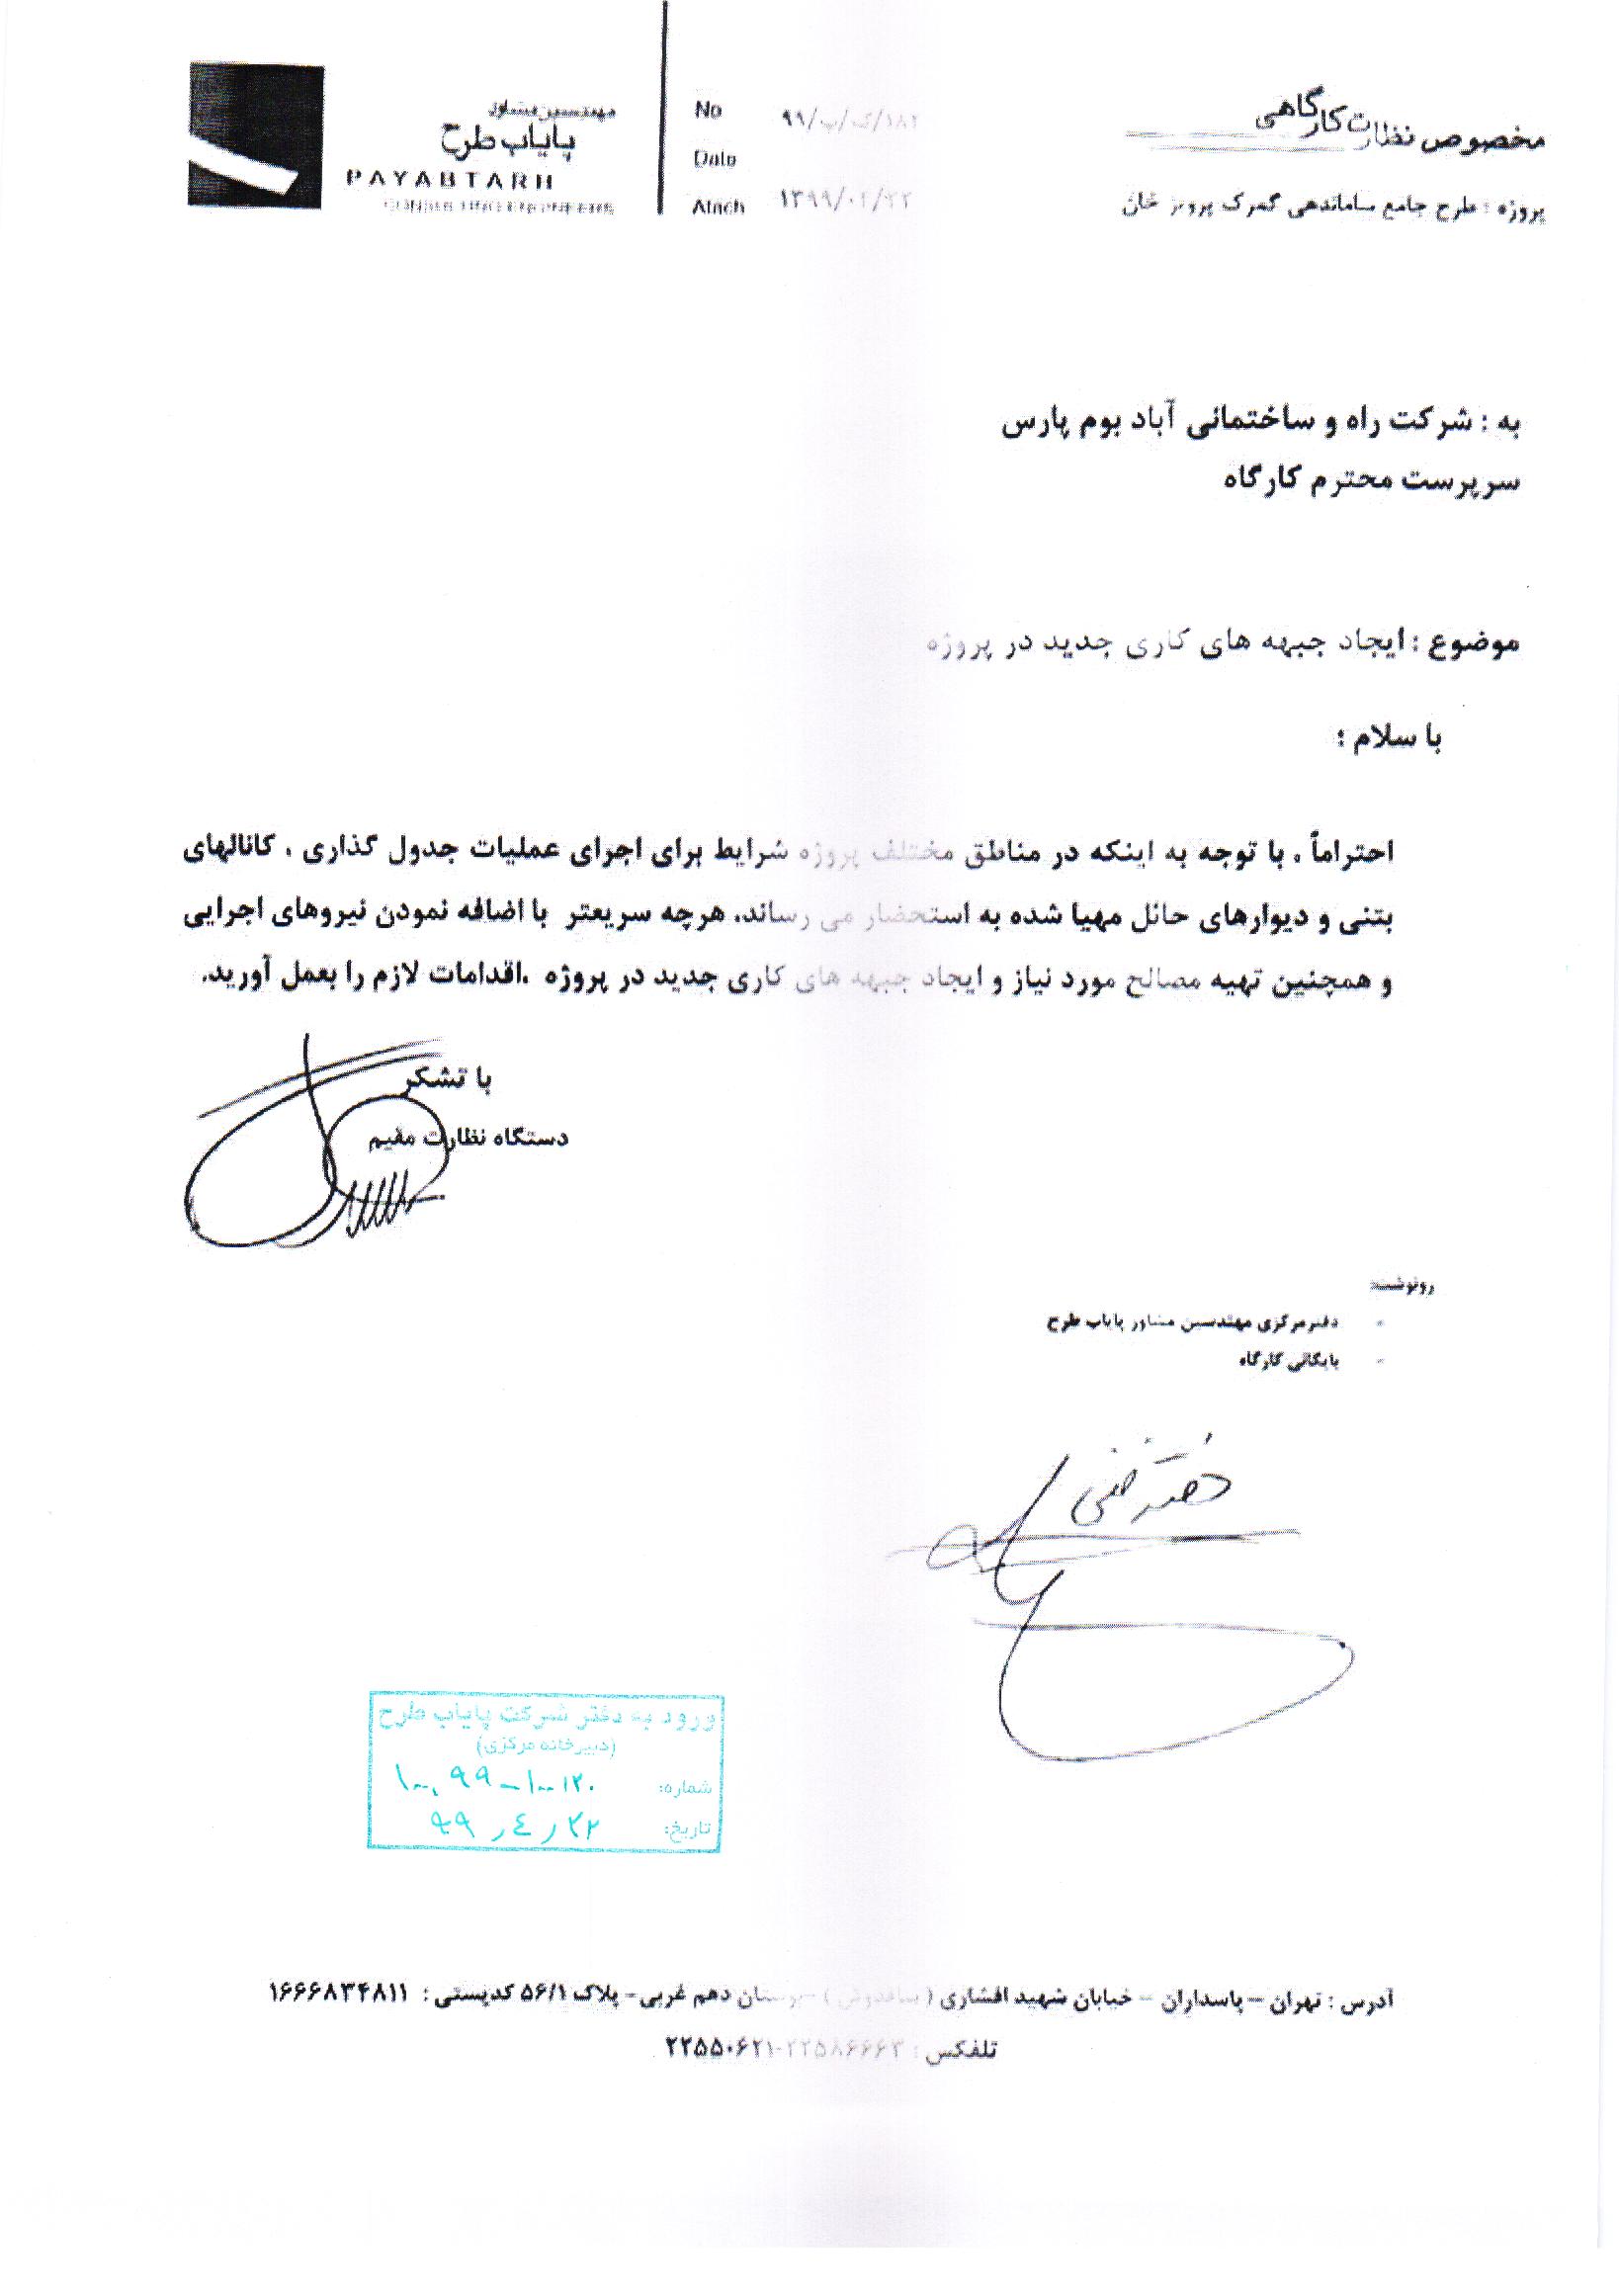 مهندسین مشاور
پایاب طرح
PAYABTARH
CONSULTING ENGINEERS
No ۱۸۲/ک/پ/۹۹
Date
Atach ۱۳۹۹/۰۲/۲۲
مخصوص نظارت کارگاهی
پروژه : طرح جامع ساماندهی گمرک پرویز خان
به : شرکت راه و ساختمانی آباد بوم پارس
سرپرست محترم کارگاه
موضوع : ایجاد جبهه های کاری جدید در پروژه
با سلام :
احتراماً ، با توجه به اینکه در مناطق مختلف پروژه شرایط برای اجرای عملیات جدول گذاری ، کانالهای
بتنی و دیوارهای حائل مهیا شده به استحضار می رساند، هرچه سریعتر با اضافه نمودن نیروهای اجرایی
و همچنین تهیه مصالح مورد نیاز و ایجاد جبهه های کاری جدید در پروژه ،اقدامات لازم را بعمل آورید.
با تشکر
دستگاه نظارت مقیم
رونوشت:
- دفترمرکزی مهندسین مشاور پایاب طرح
- بایگانی کارگاه
دفتر فنی
ورود به دفتر شرکت پایاب طرح
(دبیرخانه مرکزی)
شماره:
تاریخ: ۹۹٫۴٫۲۲
آدرس : تهران – پاسداران – خیابان شهید افشاری ( ) -بوستان دهم غربی- پلاک ۵۶/۱ کدپستی : ۱۶۶۶۸۳۴۸۱۱
تلفکس : ۲۲۵۸۶۶۶۳-۲۲۵۵۰۶۲۱